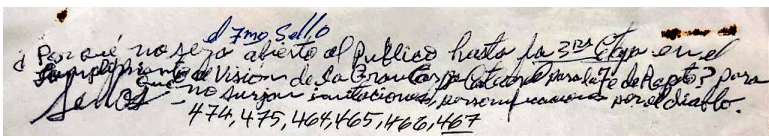 el 7mo Sello
¿Por qué no será abierto al Público hasta la 3ra Etapa en el
Cumplimiento de Visión de la Gran Carpa Catedral para la Fe de Rapto? para
Sellos que no surjan imitaciones, personificaciones por el diablo.
474, 475, 464, 465, 466, 467